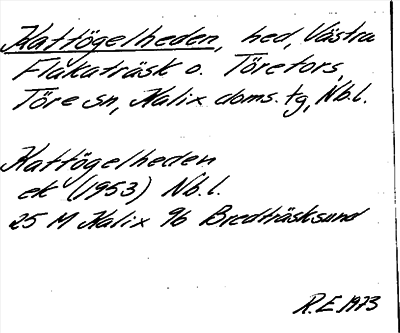 Kattögelheden, hed, Västra
Flakaträsk o. Törefors,
Töre sn, Kalix doms. tg, Nb.l.
Kattögelheden
ek (1953) Nb.l.
25 M Kalix 9b Bredträsksund
R.E. 1973